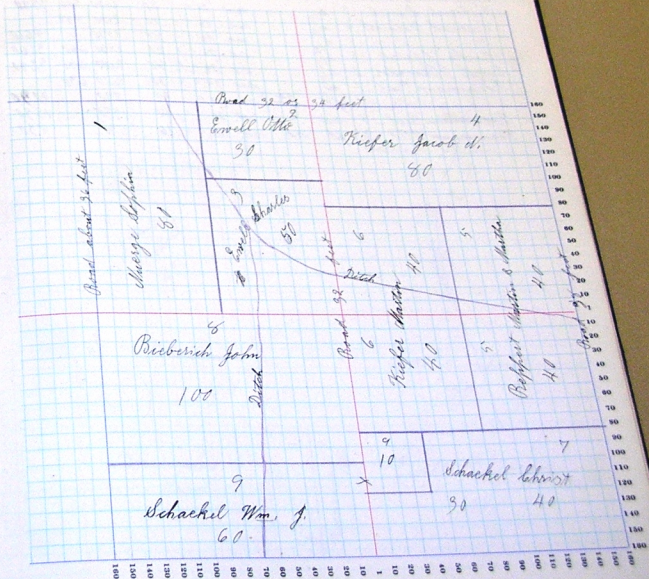 Road 32 or 34 feet
Road about 36 feet
1
80
2
Ewell Otto
30
4
Kiefer Jacob N.
80
3
Ewell Charles
50
Road 32 feet
Ditch
6
Kiefer Marton
40
6
40
5
Reppert Marton & Martha
40
5
40
Road 32 feet
8
Bieberich John
100
Ditch
9
10
X
7
Schaekel Christ
30 40
9
Schaekel Wm. J.
60.
160 150 140 130 120 110 100 90 80 70 60 50 40 30 20 10 1 10 20 30 40 50 60 70 80 90 100 110 120 130 140 150 160
160 150 140 130 120 110 100 90 80 70 60 50 40 30 20 10 1 10 20 30 40 50 60 70 80 90 100 110 120 130 140 150 160